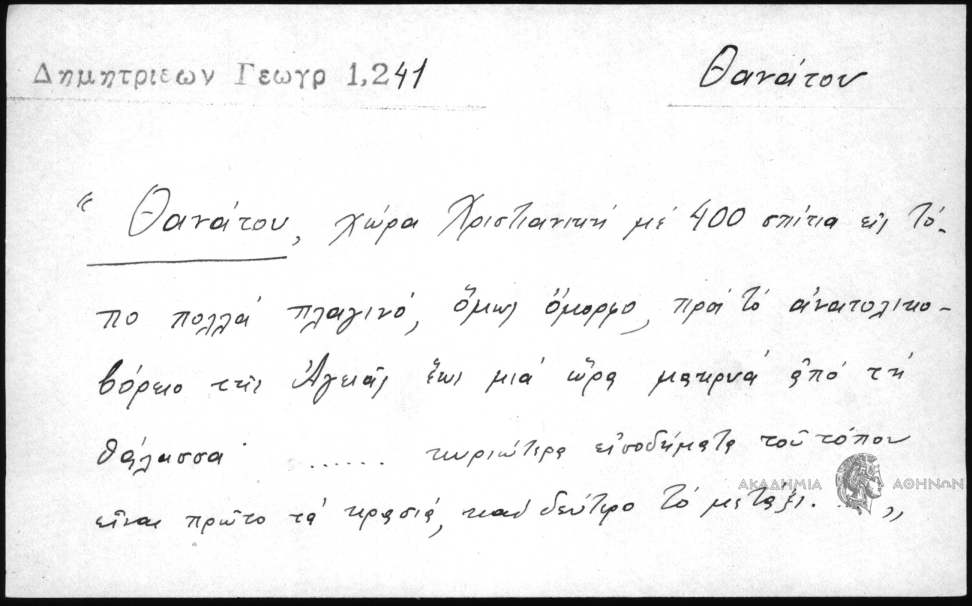 Δημητριεων Γεωγρ 1,241
Θανάτου
“ Θανάτου, χώρα Χριστιανική μέ 400 σπίτια εις τό-
πο πολλά πλαγινό, ὅμως ὄμορφο, πρός τό ἀνατολικο-
βόρειο τῆς Ἀγειᾶς ἕως μιά ὥρα μακρυά ἀπό τή
θάλασσα ...... κυριώτερα εἰσοδήματα τοῦ τόπου
ΑΚΑΔΗΜΙΑ ΑΘΗΝΩΝ
εἶναι πρῶτο τά κρασιά, καί δεύτερο τό μετάξι. „